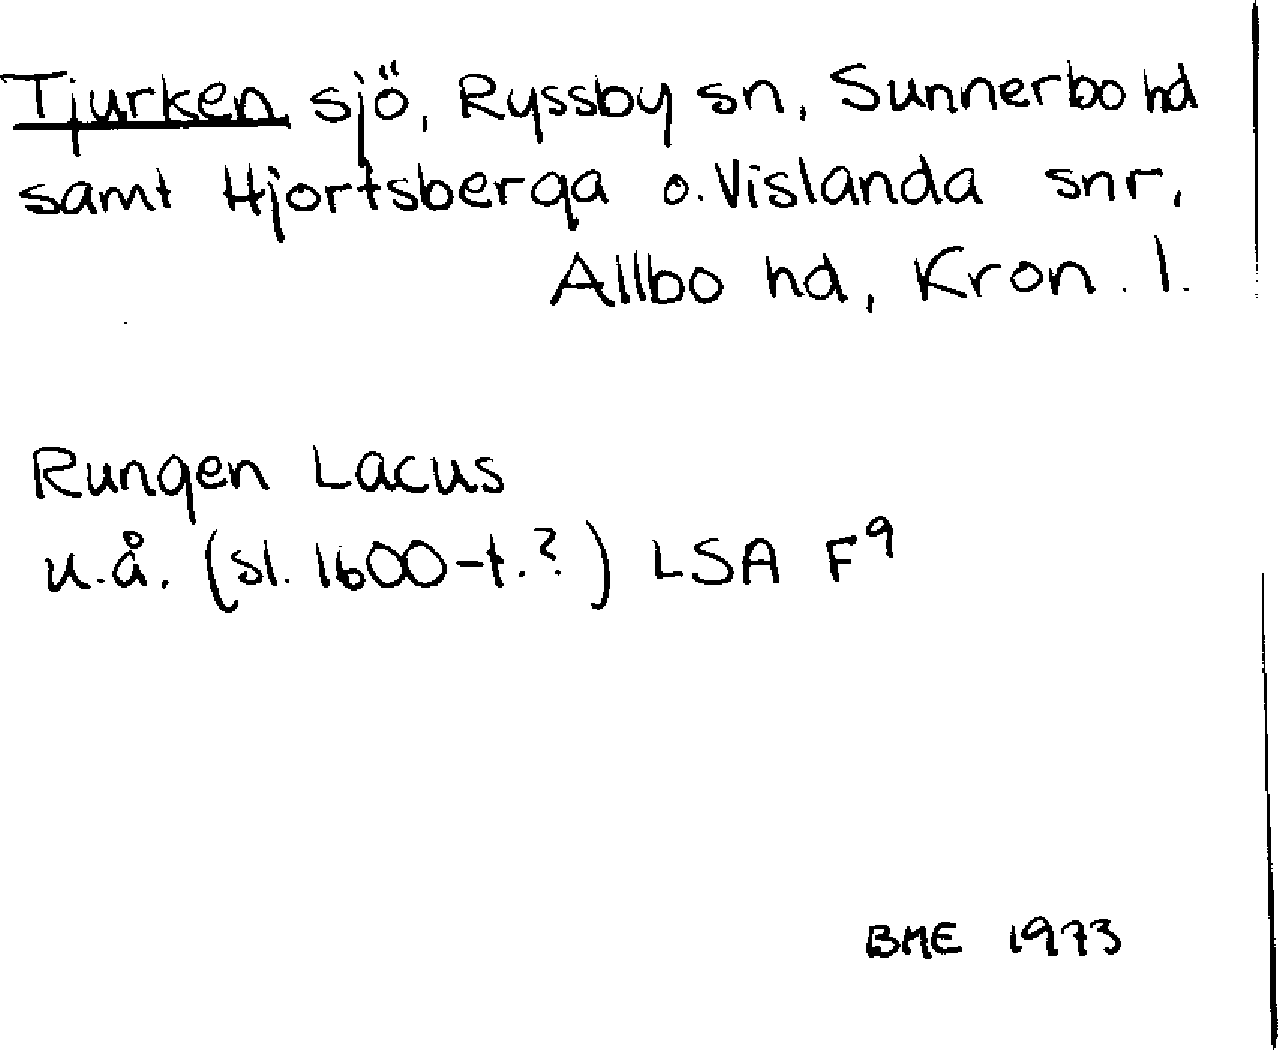 Tjurken sjö, Ryssby sn, Sunnerbo hd
samt Hjortsberga o. Vislanda snr,
Allbo hd, Kron. l.
Rungen Lacus
u.å. (sl. 1600-t.?) LSA F⁹
BME 1973